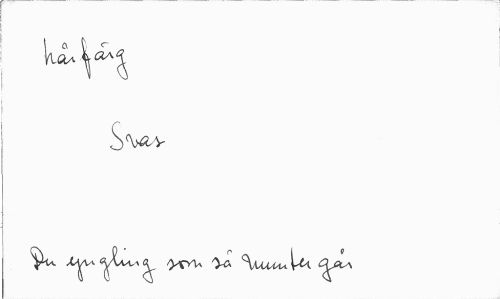 hårfärg
Svar
Du yngling som så munter går